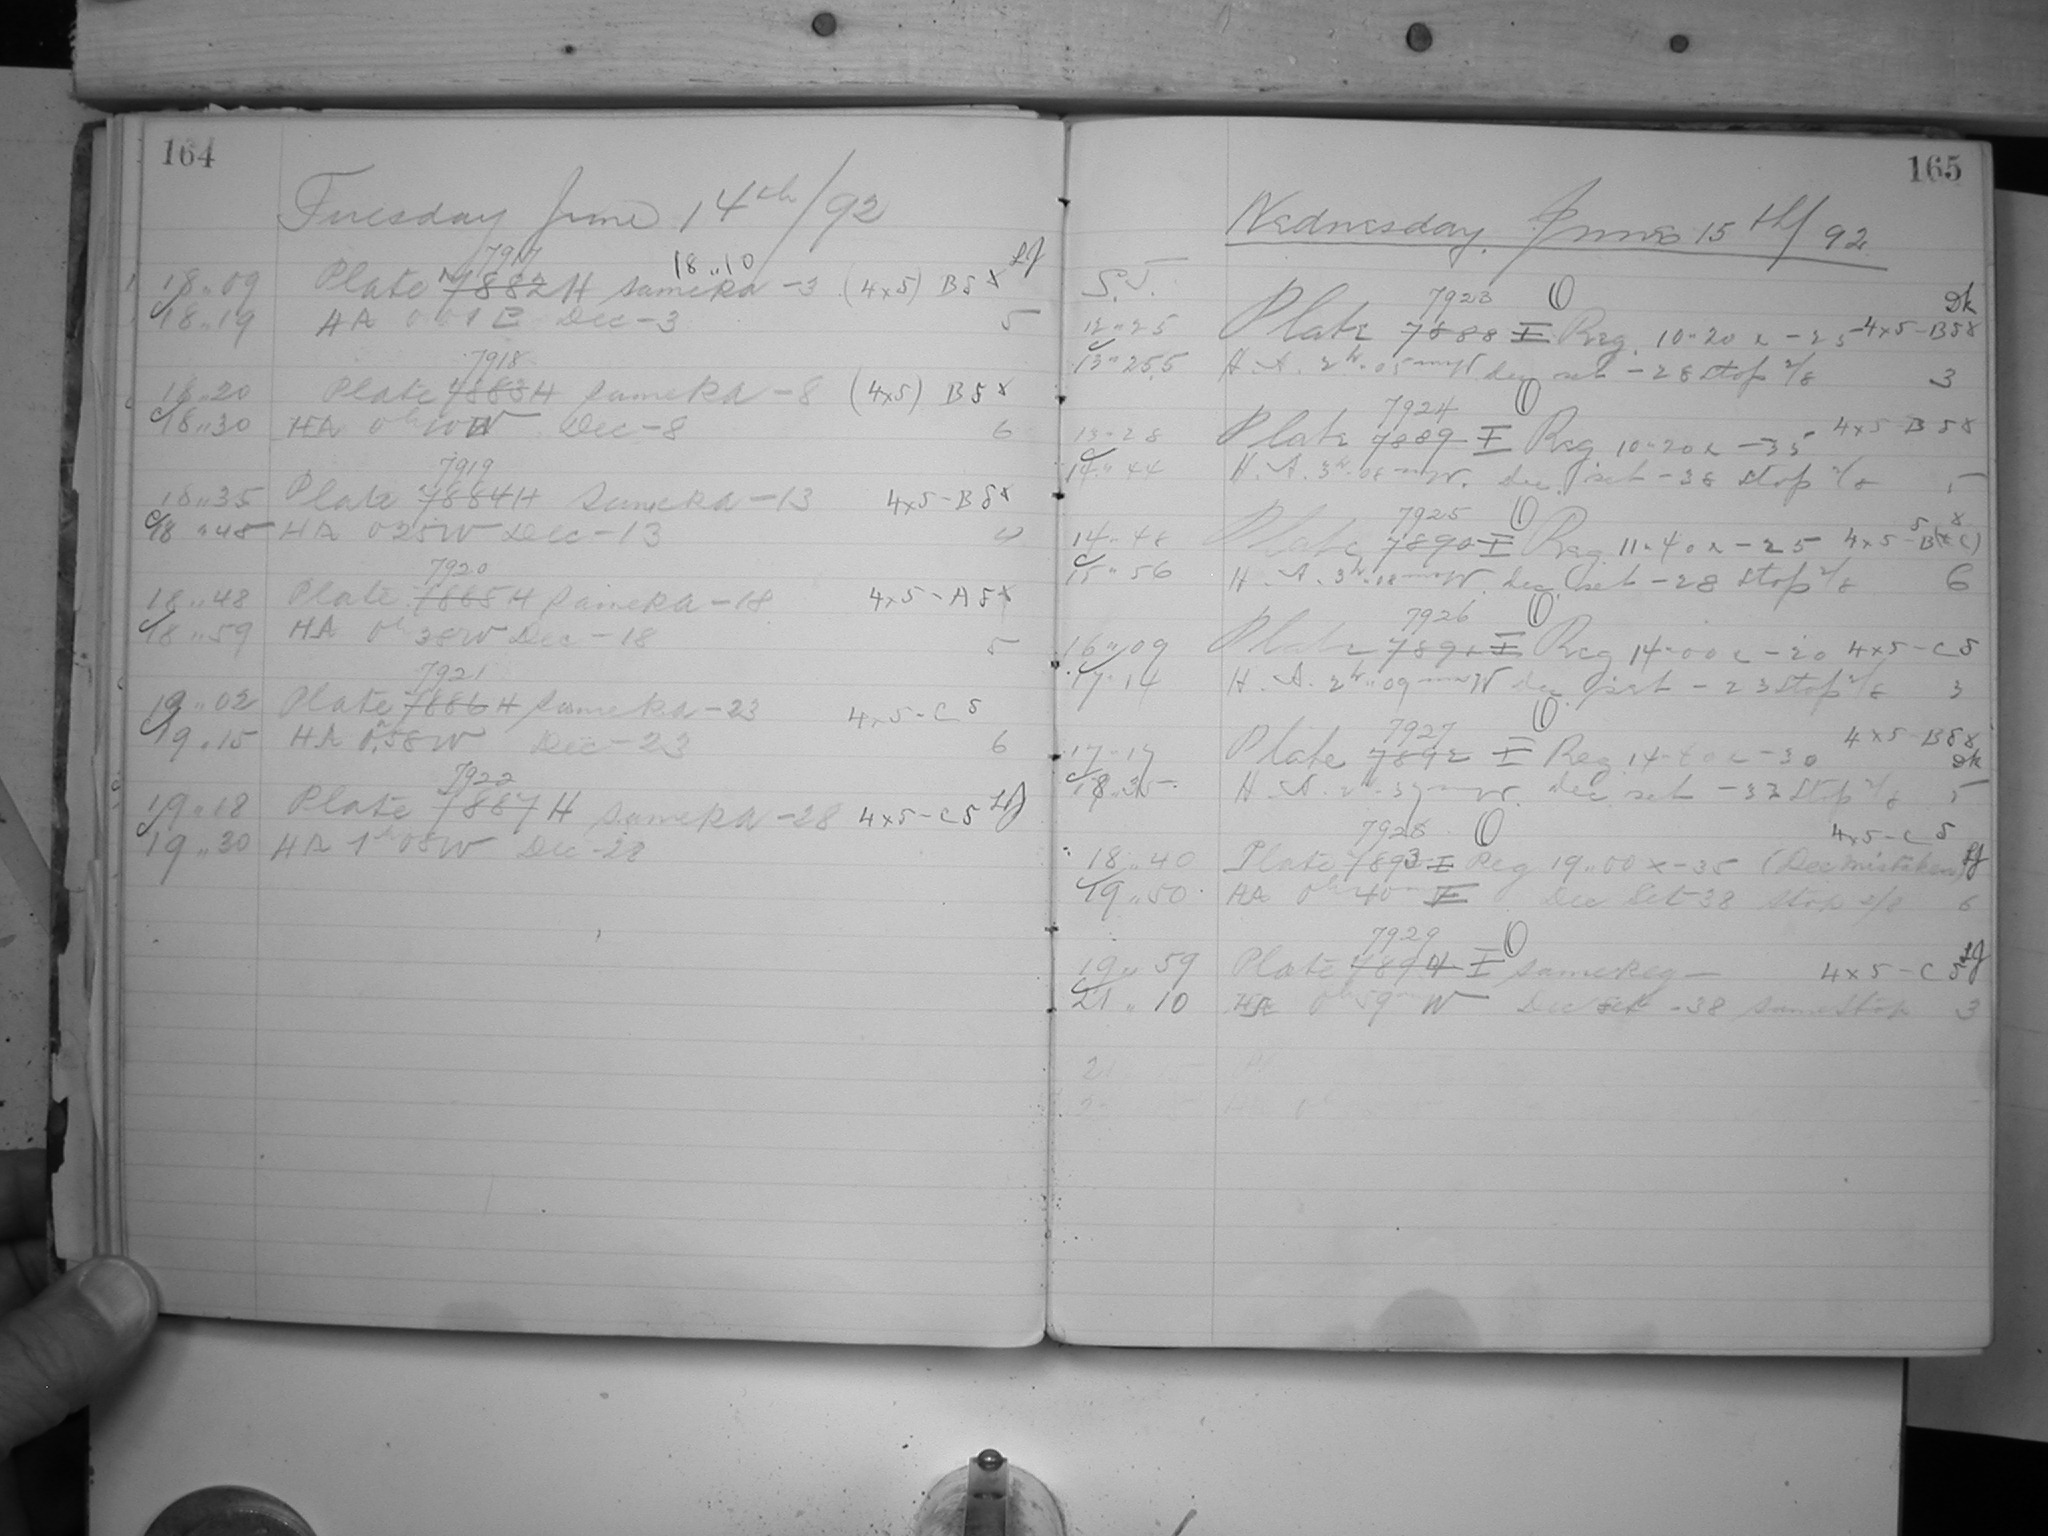 164
Tuesday June 14th/92
7917 18..10 LJ
18..09 Plate 7882 H same RA -3 (4x5) B58
18..19 HA 0 01 E Dec -3 5
7918
18..20 Plate 7883 H same RA -8 (4x5) B58
18..30 HA 0h 10 W Dec -8 6
7919
18..35 Plate 7884 H same RA -13 4x5-B58
18..45 HA 0 25 W Dec -13
7920
18..48 Plate 7885 H same RA -18 4x5-A58
18..59 HA 0h 38 W Dec -18 5
7921
19..02 Plate 7886 H same RA -23 4x5-C5
19..15 HA 0h 58 W Dec -23 6
7922
19..18 Plate 7887 H same RA -28 4x5-C5 LJ
19..30 HA 1h 08 W Dec -28
165
Wednesday. June 15th/92
S.T.
7923 Dk
12..25 Plate 7888 I Reg. 10..20 x -25 4x5-B58
13..25.5 H.A. 2h..05m W dec set -28 stop 2/8 3
7924
13..28 Plate 7889 I Reg 10..20 x -35 4x5-B58
14..44 H.A. 3h..08m W. dec. set -38 stop 2/8 5
7925
14..48 Plate 7890 I Reg 11..40 x -25 4x5-B58
15..56 H.A. 3h..08m W. dec. set -28 stop 2/8 6
7926
16..09 Plate 7891 I Reg 14..00 x -20 4x5-C5
17..14 H.A. 2h..09m W dec. set -23 stop 2/8 3
7927 4x5-B58
17..17 Plate 7892 I Reg 14..40 x -30 Dk
18..35 H.A. W. dec set -33 stop 2/8 5
7928 4x5-C5
18..40 Plate 7893 I Reg 19..00 x -35 (Dec mistaken) LJ
19..50 HA 0h 40m E Dec Set -38 stop 2/8 6
7929
19..59 Plate 7894 I same Reg — 4x5-C5 LJ
21..10 HA 0h 59m W Dec set -38 same stop 3